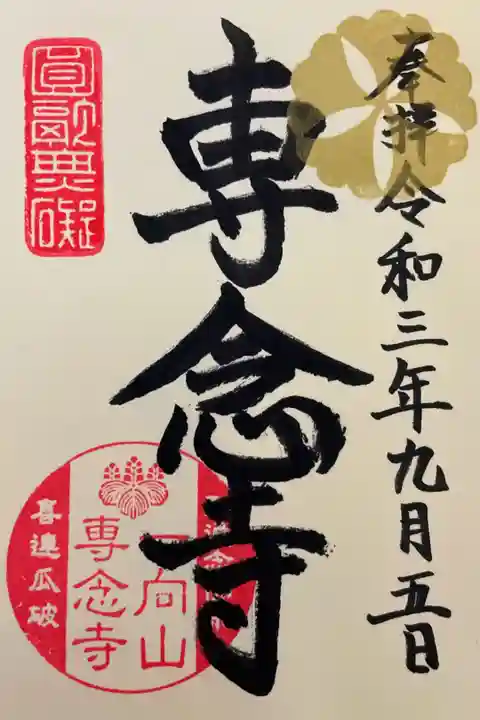 奉拝令和三年九月五日
専念寺
一向山
専念寺
喜連瓜破